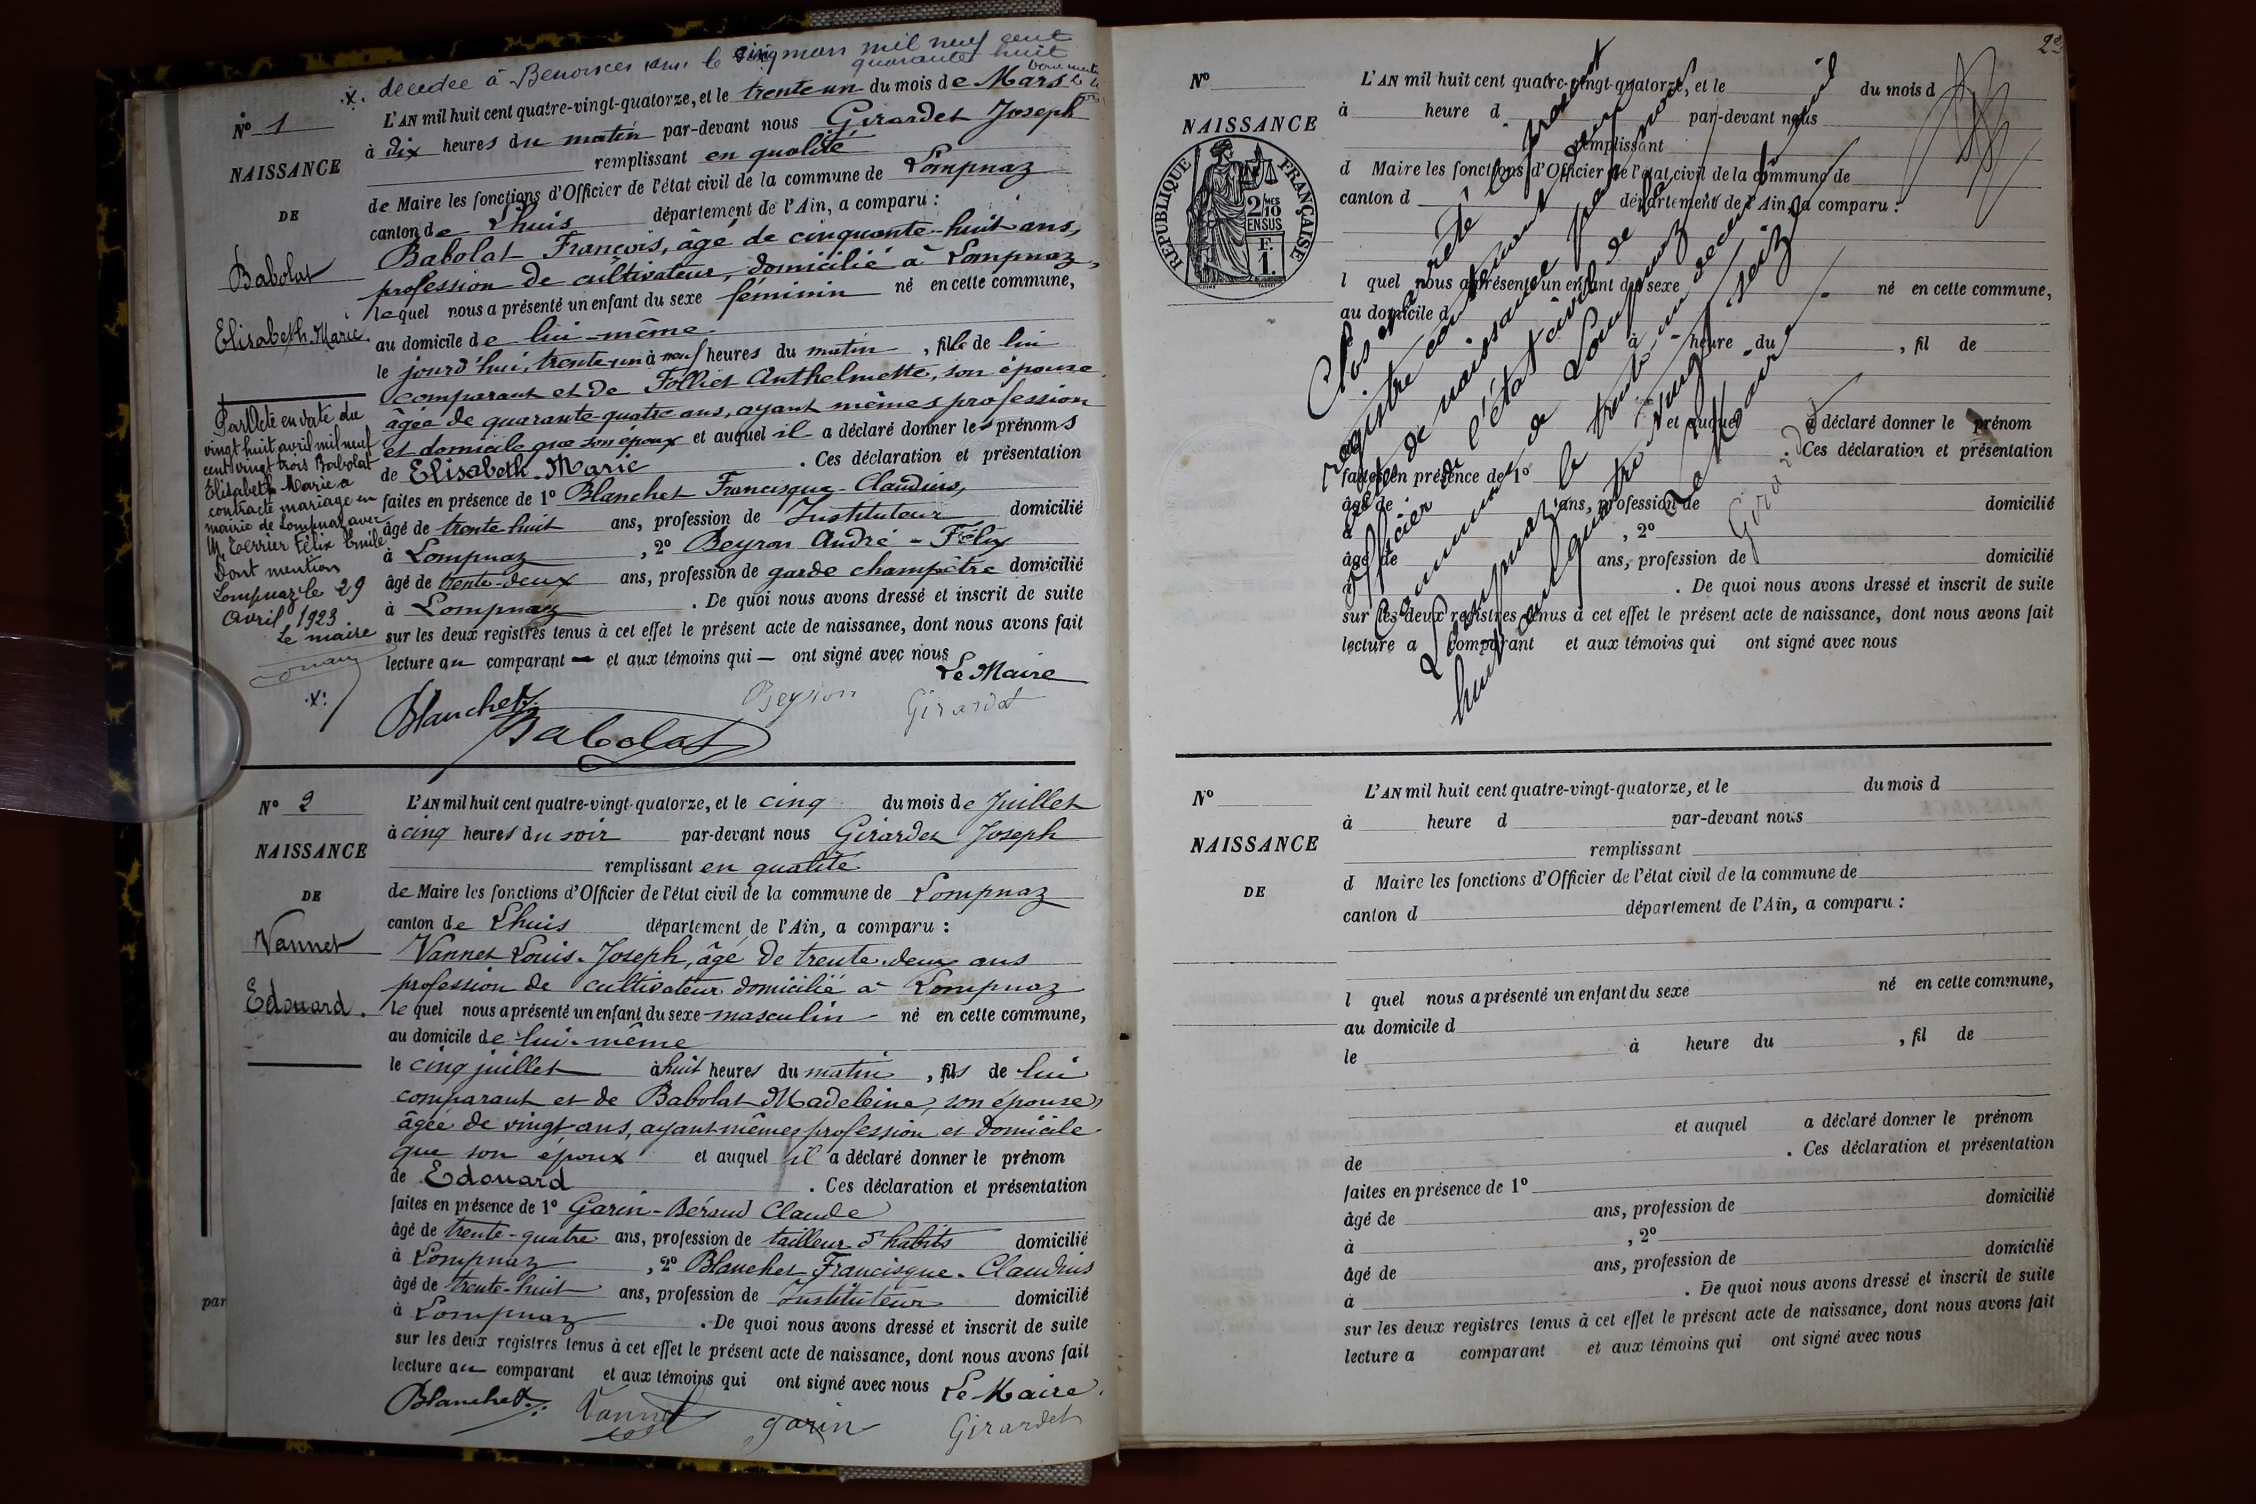 .x. décédée à Benonces le cinq mars mil neuf cent
quarante huit
N° 1
NAISSANCE
DE
Babolat
Elisabeth-Marie.
Par Acte en date du
vingt huit avril mil neuf
cent vingt trois Babolat
Elisabeth Marie a
contracté mariage en
mairie de Lompnaz avec
M. Terrier Félix Emile
Dont mention
Lompnaz le 29
Avril 1923
Le maire
.x.
L'AN mil huit cent quatre-vingt-quatorze, et le trente un du mois de Mars
à dix heures du matin par-devant nous Girardet Joseph
remplissant en qualité
de Maire les fonctions d'Officier de l'état civil de la commune de Lompnaz
canton de Lhuis département de l'Ain, a comparu :
Babolat François, âgé de cinquante-huit ans,
profession de cultivateur, domicilié à Lompnaz,
lequel nous a présenté un enfant du sexe féminin né en cette commune,
au domicile de lui-même
le jourd'hui, trente-un à neuf heures du matin , fille de lui
comparant et de Folliet Anthelmette, son épouse
âgée de quarante-quatre ans, ayant mêmes profession
et domicile que son époux et auquel il a déclaré donner les prénoms
de Elisabeth-Marie . Ces déclaration et présentation
faites en présence de 1° Blanchet Francisque-Claudius,
âgé de trente huit ans, profession de Instituteur domicilié
à Lompnaz , 2° Beyron André-Félix
âgé de trente-deux ans, profession de garde champêtre domicilié
à Lompnaz . De quoi nous avons dressé et inscrit de suite
sur les deux registres tenus à cet effet le présent acte de naissance, dont nous avons fait
lecture au comparant et aux témoins qui ont signé avec nous
Le Maire
Blanchet Beyron Girardet
Babolat
N° 2
NAISSANCE
DE
Vannet
Edouard.
L'AN mil huit cent quatre-vingt-quatorze, et le cinq du mois de Juillet
à cinq heures du soir par-devant nous Girardet Joseph
remplissant en qualité
de Maire les fonctions d'Officier de l'état civil de la commune de Lompnaz
canton de Lhuis département de l'Ain, a comparu :
Vannet Louis-Joseph, âgé de trente-deux ans
profession de cultivateur domicilié à Lompnaz
lequel nous a présenté un enfant du sexe masculin né en cette commune,
au domicile de lui-même
le cinq juillet à huit heures du matin , fils de lui
comparant et de Babolat Madeleine, son épouse,
âgée de vingt ans, ayant mêmes profession et domicile
que son époux et auquel il a déclaré donner le prénom
de Edouard . Ces déclaration et présentation
faites en présence de 1° Garin-Béraud Claude
âgé de trente-quatre ans, profession de tailleur d'habits domicilié
à Lompnaz , 2° Blanchet Francisque-Claudius
âgé de trente-huit ans, profession de Instituteur domicilié
à Lompnaz . De quoi nous avons dressé et inscrit de suite
sur les deux registres tenus à cet effet le présent acte de naissance, dont nous avons fait
lecture au comparant et aux témoins qui ont signé avec nous Le Maire.
Blanchet Vannet garin Girardet
par
N°
NAISSANCE
RÉPUBLIQUE FRANÇAISE
2/10 MES
EN SUS
F.
1.
L'AN mil huit cent quatre-vingt-quatorze, et le du mois d
à heure d par-devant nous
remplissant
d Maire les fonctions d'Officier de l'état civil de la commune de
canton d département de l'Ain, a comparu :
l quel nous a présenté un enfant du sexe né en cette commune,
au domicile d
à heure du , fil de
et auquel a déclaré donner le prénom
Ces déclaration et présentation
faites en présence de 1°
âgé de ans, profession de domicilié
à , 2°
âgé de ans, profession de domicilié
à . De quoi nous avons dressé et inscrit de suite
sur les deux registres tenus à cet effet le présent acte de naissance, dont nous avons fait
lecture a comparant et aux témoins qui ont signé avec nous
Clos et arrêté le présent
registre contenant deux
actes de naissance par nous
officier de l'état civil de la
commune de Lompnaz
Lompnaz le trente un décembre mil
huit cent quatre vingt
Le Maire
Girardet
N°
NAISSANCE
DE
L'AN mil huit cent quatre-vingt-quatorze, et le du mois d
à heure d par-devant nous
remplissant
d Maire les fonctions d'Officier de l'état civil de la commune de
canton d département de l'Ain, a comparu :
l quel nous a présenté un enfant du sexe né en cette commune,
au domicile d
le à heure du , fil de
et auquel a déclaré donner le prénom
de . Ces déclaration et présentation
faites en présence de 1°
âgé de ans, profession de domicilié
à , 2°
âgé de ans, profession de domicilié
à . De quoi nous avons dressé et inscrit de suite
sur les deux registres tenus à cet effet le présent acte de naissance, dont nous avons fait
lecture a comparant et aux témoins qui ont signé avec nous